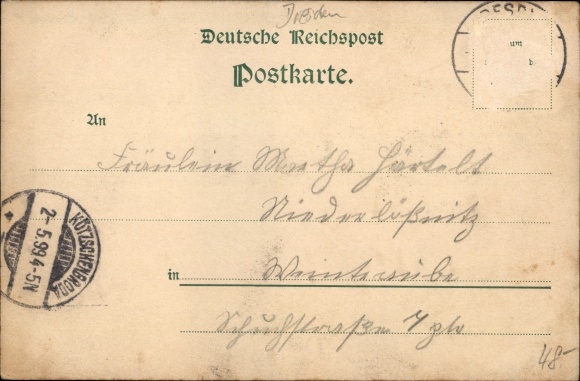 Dresden
Deutsche Reichspost
Postkarte.
An
Fräulein Martha Härtelt
Niederlößnitz
in
Schuhstraße 7 ptr
KÖTZSCHENBRODA
2-5.99.4-5N
48-